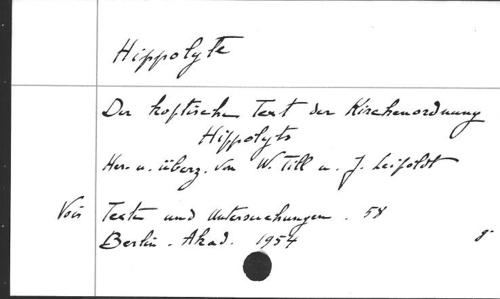 Hippolyte
Der koptische Text der Kirchenordnung
Hippolyts
Her. u. überz. von W. Till u. J. Leipoldt
Voir Texte und Untersuchungen. 58
Berlin. Akad. 1954
8°